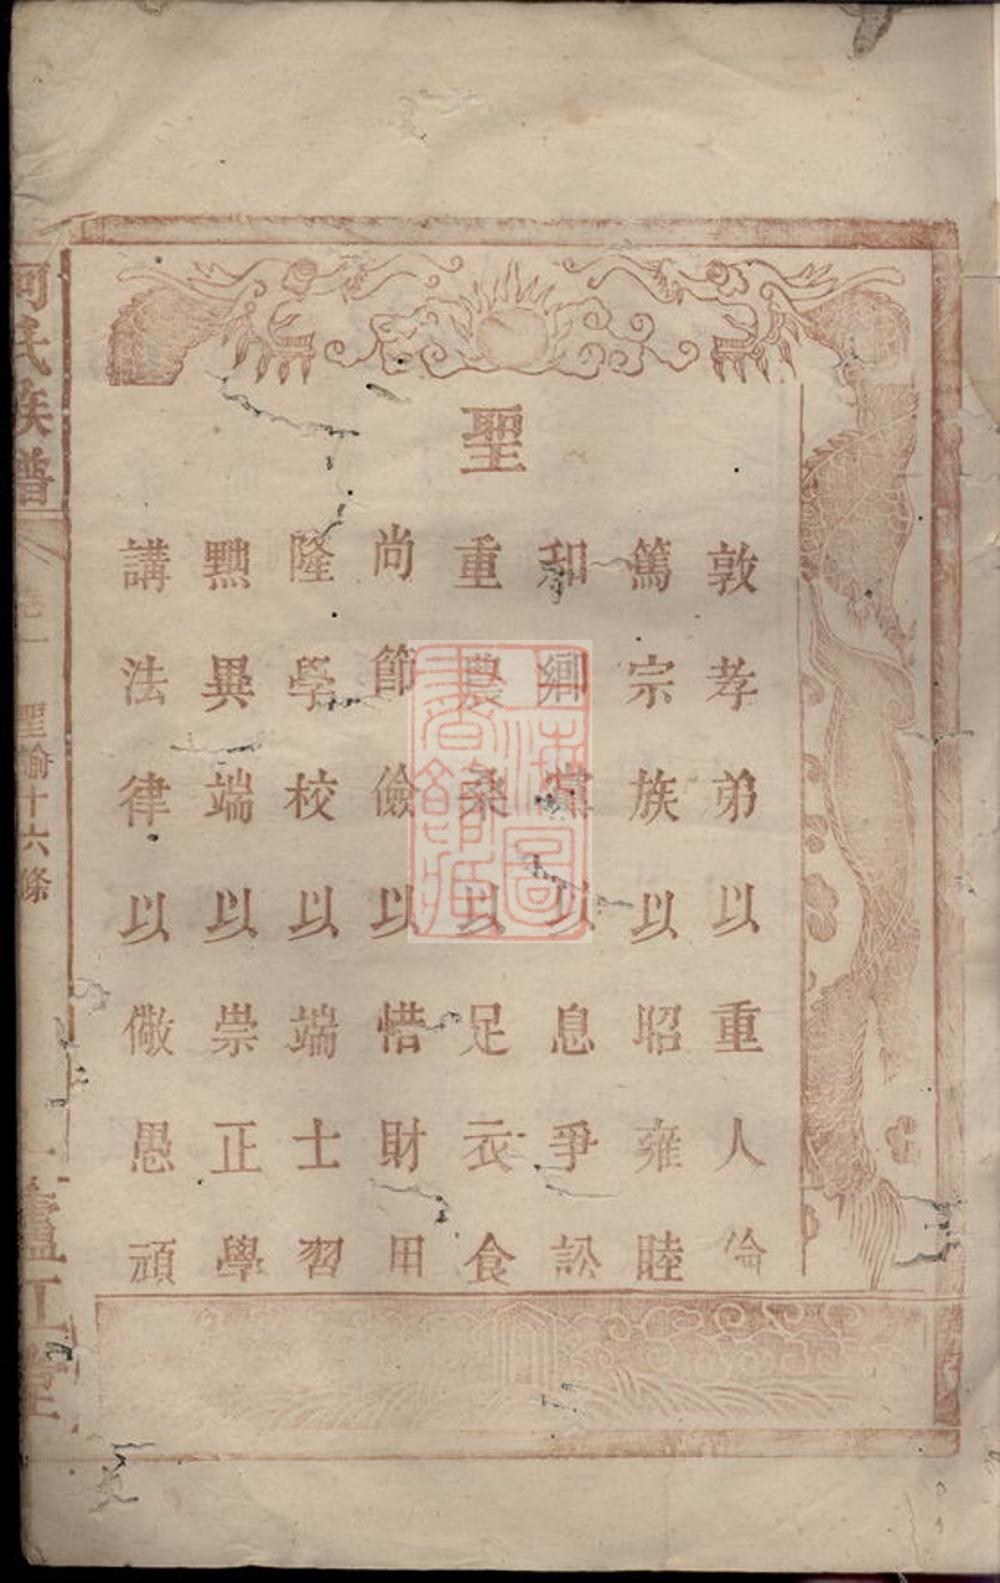 聖
敦孝弟以重人倫
篤宗族以昭雍睦
和鄉黨以息爭訟
重農桑以足衣食
尚節儉以惜財用
隆學校以端士習
黜異端以崇正學
講法律以儆愚頑
何氏族譜
卷二
聖諭十六條
一
廬江堂
上海圖
書館藏